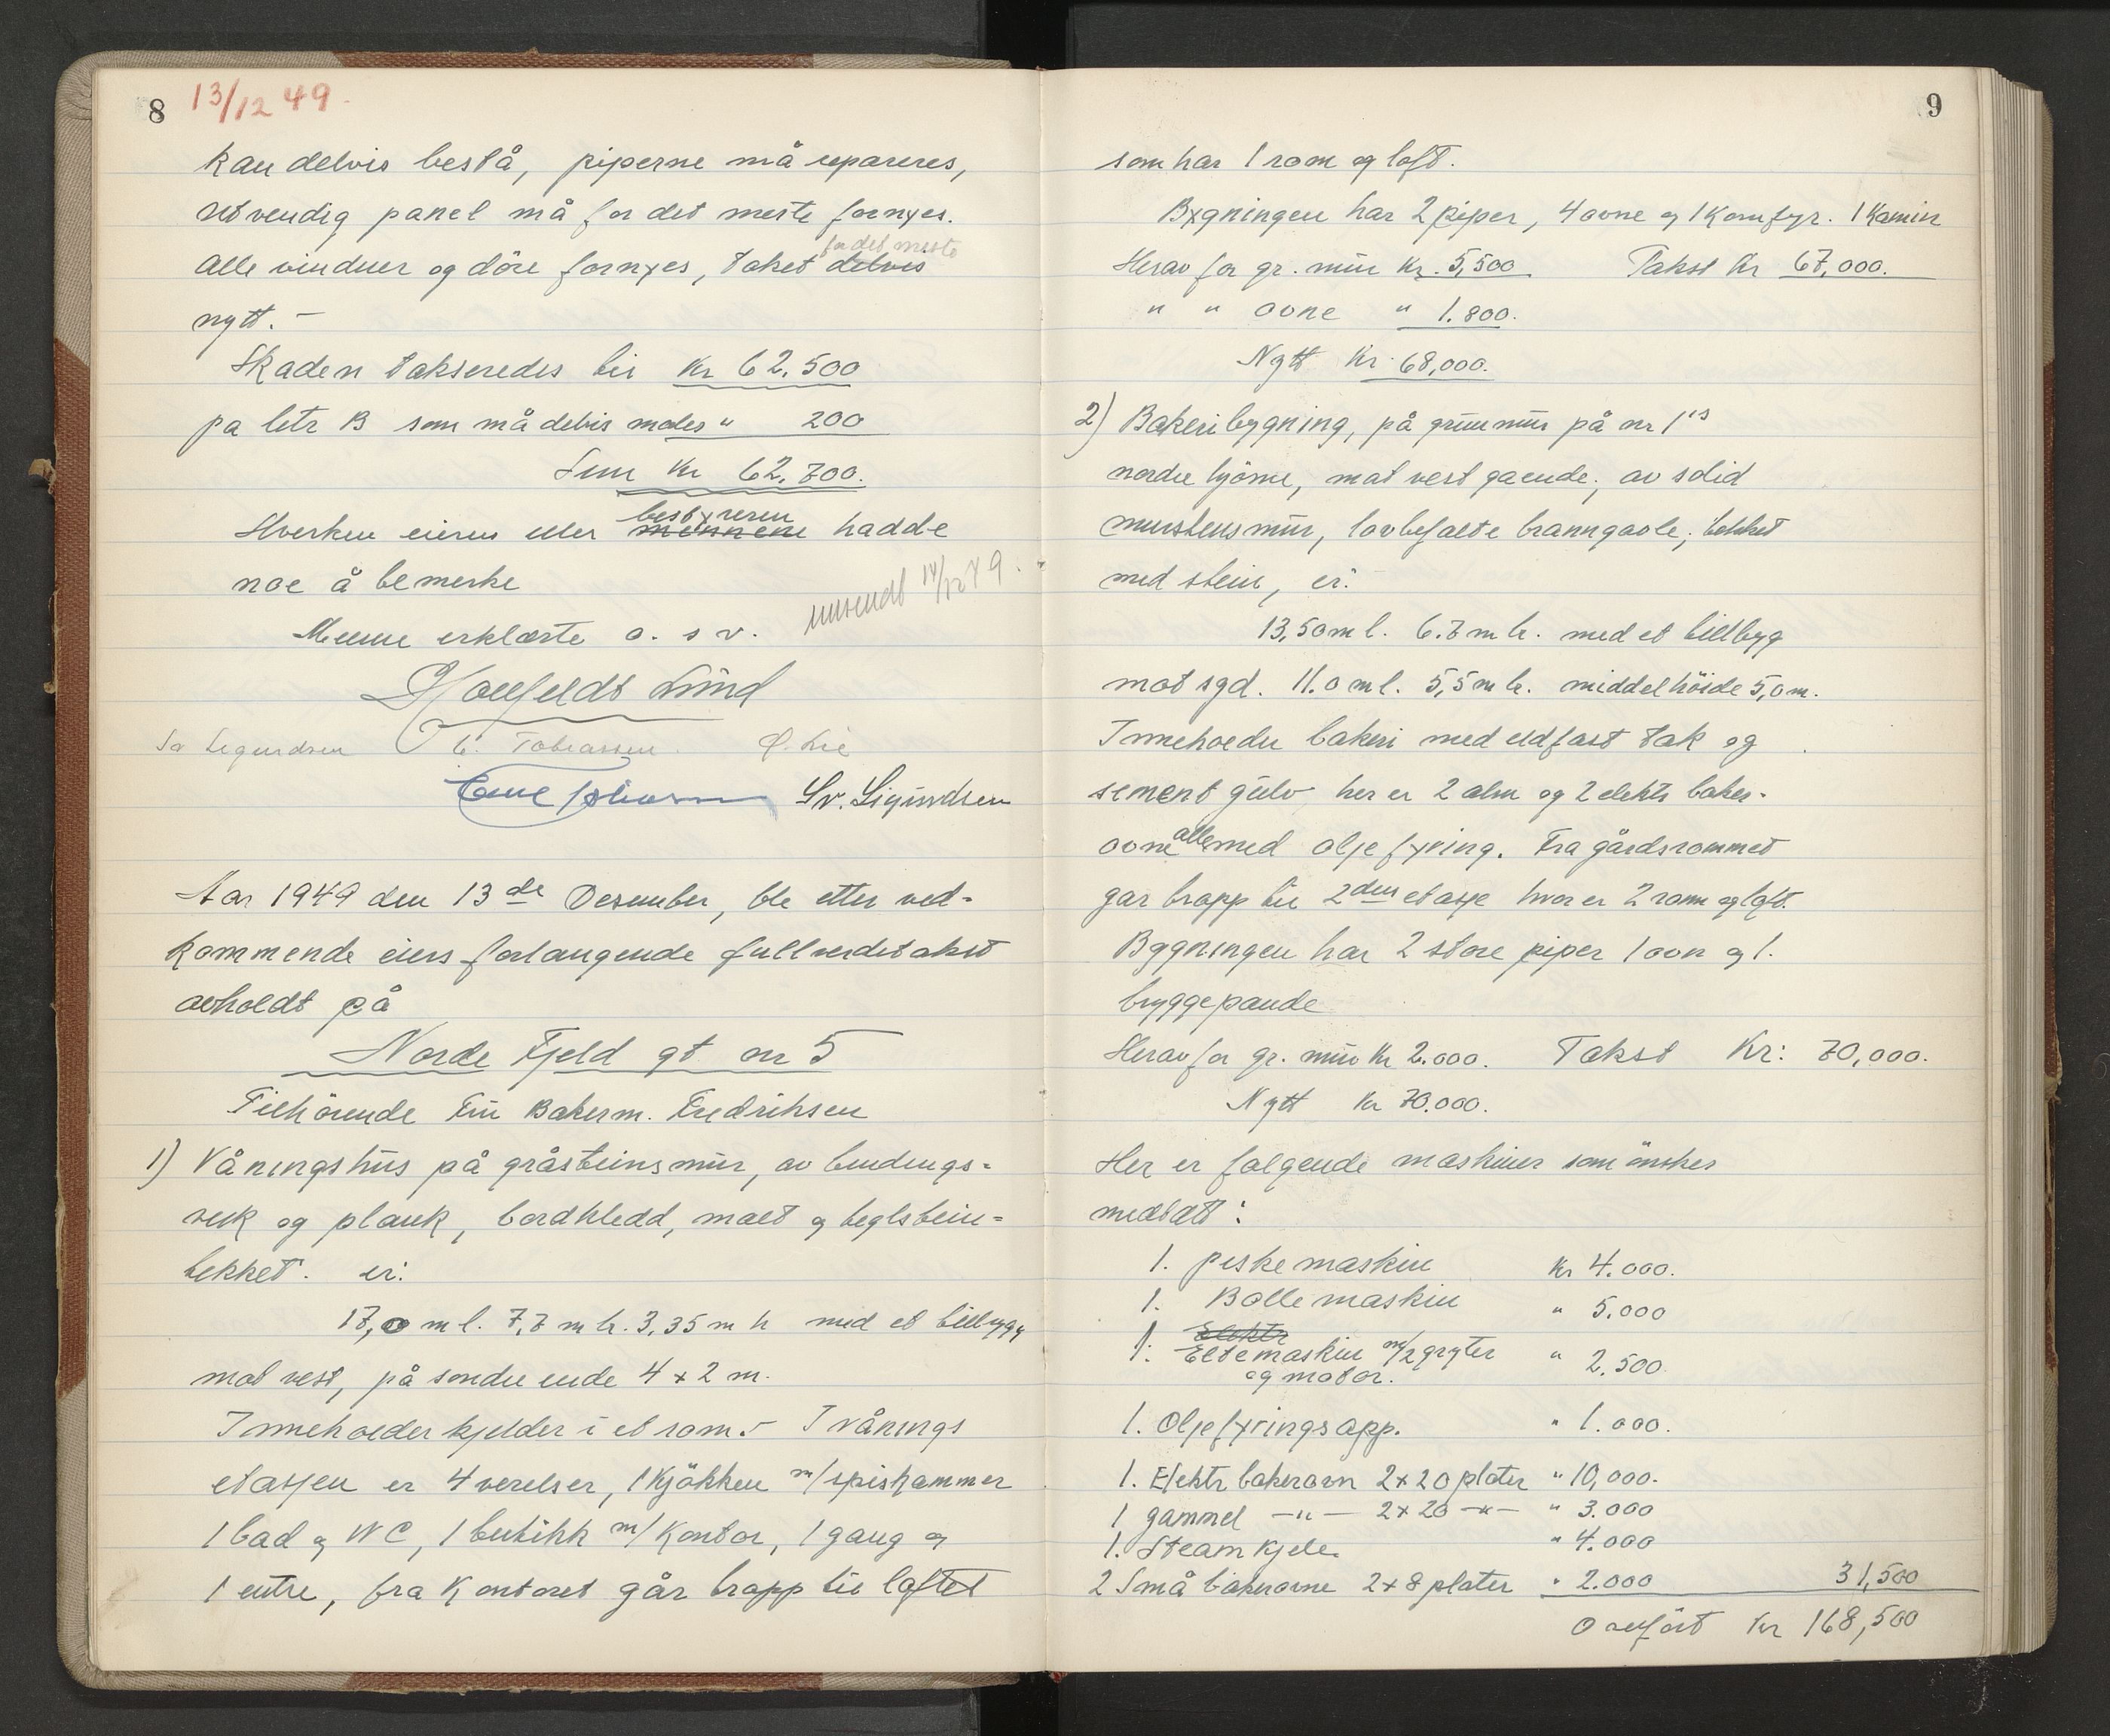 8 13/12 49.
kan delvis bestå, piperne må repareres,
utvendig panel må for det meste fornyes.
for det meste
Alle vinduer og döre fornyes, taket delvis
nytt. -
Skaden takseredes til Kr 62.500
pa letr B som må delvis males " 200
Sum Kr 62.700.
bestyreren
Hverken eieren eller mennene hadde
noe å bemerke
innsendt 14/12 49.
Mennene erklærte o. s v.
Lund
Sv Sigurdsen C. Tobiassen. O. Lie
Sv. Sigurdsen
Aar 1949 den 13de Desember, ble etter ved-
kommende eiers forlangende fullverditakst
avholdt på
Nordre Fjeld gt nr 5
Tilhörende Fru Bakerm. Fredriksen
1) Våningshus på gråsteinsmur, av bindings=
verk og plank, bordkledd, malt og teglstein=
tekket. er:
17,0 m l. 7,7 m br. 3,35 m h med et tilbygg
mot vest, på söndre ende 4 x 2 m.
Inneholder kjelder i et rom.- I vånings
etasjen er 4 verelser, 1 Kjökken m/spiskammer
1 bad og WC, 1 butikk m/ Kontor, 1 gang og
1 entre, fra Kontoret går trapp til loftet
9
som har 1 rom og loft.
Bygningen har 2 piper, 4 ovne og 1 Komfyr. 1 Kamin
Herav for gr. mur Kr. 5,500. Takst Kr 67,000.
" " ovne " 1.800.
Nytt Kr. 68,000.
2) Bakeribygning, på grunnmur på nr 1's
nordre hjörne, mot vest gaende, av solid
murstensmur, lovbefalte branngavle; tekket
med stein, er:
13,50 m l. 6.7 m br. med et tillbygg
mot sgd. 11.0 m l. 5,5 m br. middelhöide 5,0 m.
Inneholder bakeri med ildfast tak og
sement gulv her er 2 alm og 2 elektr baker-
alle
ovne med oljefyring. Fra gårdsrommet
gar trapp til 2den etasje hvor er 2 rom og loft.
Byggningen har 2 store piper 1 ovn og 1.
bryggepande
Herav for gr. mur Kr 2.000. Takst Kr: 70,000.
Nytt Kr 70.000.
Her er følgende maskiner som önskes
medtatt:
1. piskemaskin Kr 4.000.
1. Bollemaskin " 5.000
Elektr
1. Eltemaskin m/2 gryter " 2.500
og motor.
1. Oljefyringsapp. " 1.000.
1. Elektr bakerovn 2x20 plater " 10,000.
1 gammel -"- 2x20 -"- " 3.000
1. Steam Kjele. " 4.000
2 Små bakerovne 2x8 plater " 2.000 31,500
Overfört Kr 168,500